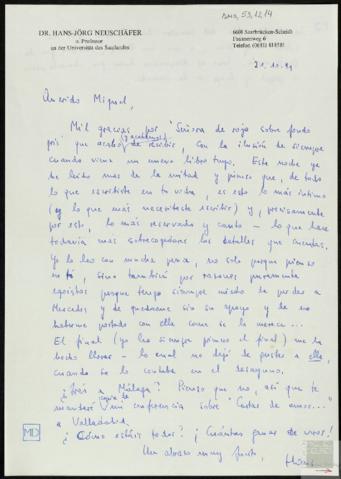 DMD, 53,1214
DR. HANS-JÖRG NEUSCHÄFER
o. Professor
an der Universität des Saarlandes
6601 Saarbrücken-Scheidt
Telefon (0681)
21.10.91
Querido Miguel,
Mil gracias por "Señora de rojo sobre fondo
gris" que acabo de recibir, con la ilusión de siempre
cuando viene un nuevo libro tuyo. Esta noche ya
he leído más de la mitad y pienso que, de todo
lo que escribiste en tu vida, es esto lo más íntimo
(y lo que más necesitaste escribir) y, precisamente
por esto, lo más reservado y cauto – lo que hace
todavía más sobrecogedores los detalles que cuentas.
Yo lo leo con mucha pena, no solo porque pienso
en tí, sino también por razones puramente
egoístas porque tengo siempre miedo de perder a
Mercedes y de quedarme sin su apoyo y de no
haberme portado con ella como se lo merece...
El final (yo leo siempre primero el final) me ha
hecho llorar – lo cual no dejó de gustar a ella,
cuando se lo contaba en el desayuno.
¿Irás a Málaga? Pienso que no, así que te
mandaré copia de mi conferencia sobre "Cartas de amor..."
a Valladolid.
¿Cómo estáis todos? ¡Cuántas ganas de veros!
Un abrazo muy fuerte,
Hans
MD